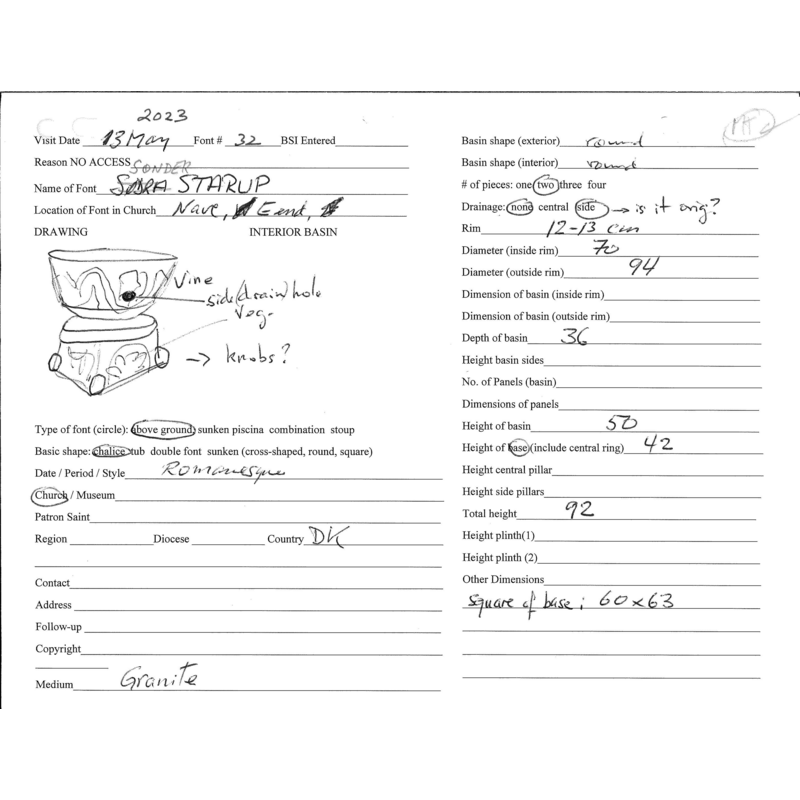 2023
Visit Date 13 May Font # 32 BSI Entered
Reason NO ACCESS SONDER
Name of Font STARUP
Location of Font in Church Nave, E end,
DRAWING INTERIOR BASIN
Vine
side (drain) hole
Veg.
→ knobs?
Type of font (circle): above ground sunken piscina combination stoup
Basic shape: chalice tub double font sunken (cross-shaped, round, square)
Date / Period / Style Romanesque
Church / Museum
Patron Saint
Region Diocese Country DK
Contact
Address
Follow-up
Copyright
Medium Granite
Basin shape (exterior) round
Basin shape (interior) round
# of pieces: one two three four
Drainage: none central side → is it orig?
Rim 12-13 cm
Diameter (inside rim) 70
Diameter (outside rim) 94
Dimension of basin (inside rim)
Dimension of basin (outside rim)
Depth of basin 36
Height basin sides
No. of Panels (basin)
Dimensions of panels
Height of basin 50
Height of base (include central ring) 42
Height central pillar
Height side pillars
Total height 92
Height plinth(1)
Height plinth (2)
Other Dimensions
square of base; 60 x 63